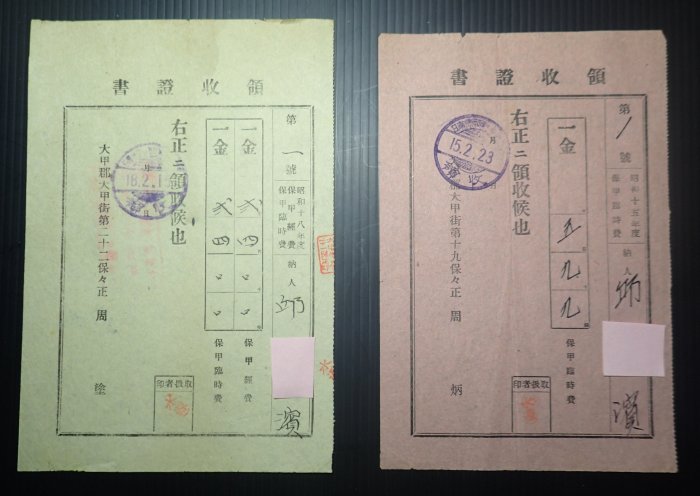 領收證書
第一號
昭和十八年度
保甲經費
保甲臨時費
納人 邱 濱
一金 弐四〇〇 保甲經費
一金 弐四〇〇 保甲臨時費
右正ニ領收候也
月
月
18.2.1
大甲郡大甲街第二十二保々正 周 塗
取扱者印
領收證書
第1號
昭和十五年度
保甲臨時費
納人 邱 濱
一金 五九九 保甲臨時費
右正ニ領收候也
月
15.2.23
收
郡大甲街第十九保々正 周 炳
取扱者印